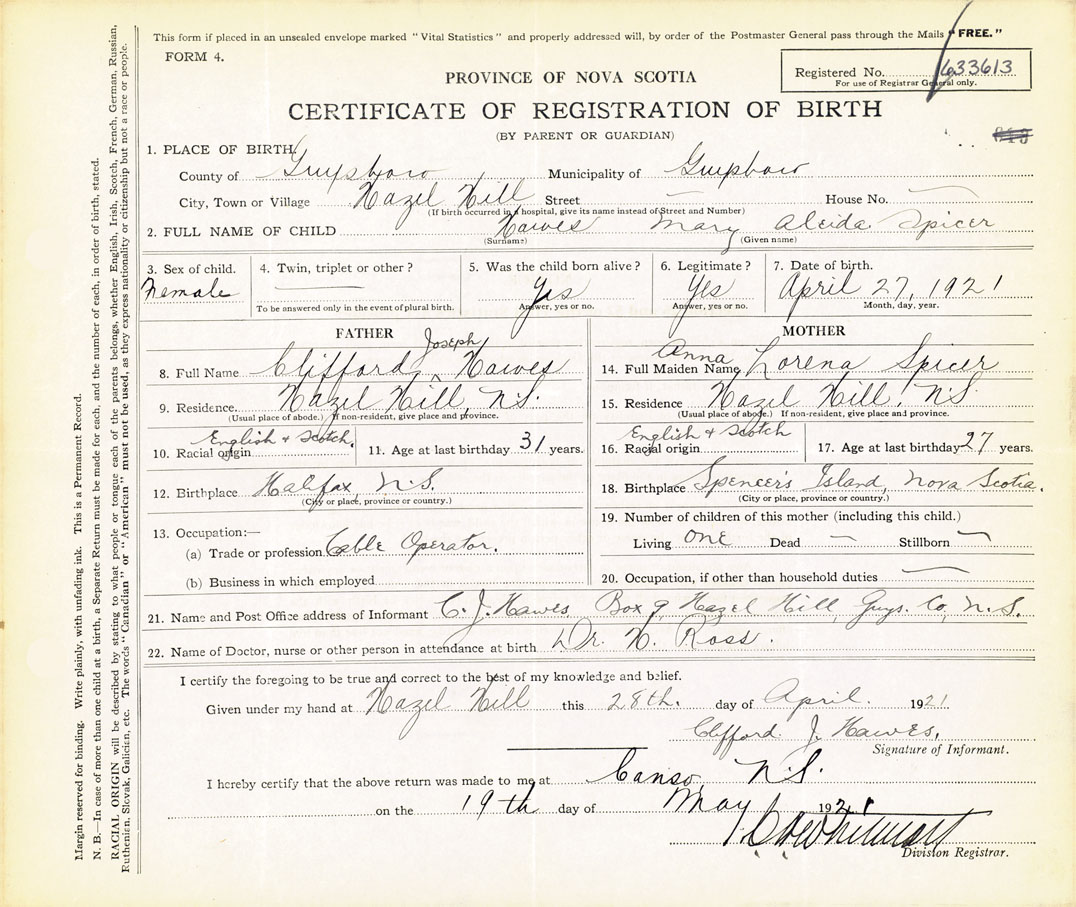 This form if placed in an unsealed envelope marked "Vital Statistics" and properly addressed will, by order of the Postmaster General pass through the Mails "FREE."
FORM 4.
Registered No. 633613
For use of Registrar General only.
PROVINCE OF NOVA SCOTIA
CERTIFICATE OF REGISTRATION OF BIRTH
(BY PARENT OR GUARDIAN)
1. PLACE OF BIRTH
County of Guysboro Municipality of Guysboro
City, Town or Village Hazel Hill Street — House No. —
(If birth occurred in a hospital, give its name instead of Street and Number)
2. FULL NAME OF CHILD Hawes Mary Aleida Spicer
(Surname) (Given name)
3. Sex of child. 4. Twin, triplet or other? 5. Was the child born alive? 6. Legitimate? 7. Date of birth.
Female — Yes Yes April 27, 1921
To be answered only in the event of plural birth. Answer, yes or no. Answer, yes or no. Month, day, year.
FATHER
8. Full Name Clifford Joseph Hawes
9. Residence Hazel Hill, N.S.
(Usual place of abode.) If non-resident, give place and province.
10. Racial origin English & Scotch. 11. Age at last birthday 31 years.
12. Birthplace Halifax, N.S.
(City or place, province or country.)
13. Occupation:—
(a) Trade or profession Cable Operator.
(b) Business in which employed
MOTHER
14. Full Maiden Name Anna Lorena Spicer
15. Residence Hazel Hill, N.S.
(Usual place of abode.) If non-resident, give place and province.
16. Racial origin English & Scotch 17. Age at last birthday 27 years.
18. Birthplace Spencer's Island, Nova Scotia.
(City or place, province or country.)
19. Number of children of this mother (including this child.)
Living one Dead — Stillborn —
20. Occupation, if other than household duties —
21. Name and Post Office address of Informant C. J. Hawes, Box 9 Hazel Hill, Guys. Co, N.S.
22. Name of Doctor, nurse or other person in attendance at birth Dr. H. Ross.
I certify the foregoing to be true and correct to the best of my knowledge and belief.
Given under my hand at Hazel Hill this 28th. day of April. 1921
Clifford J. Hawes,
Signature of Informant.
I hereby certify that the above return was made to me at Canso, N.S.
on the 19th day of May 1921
Division Registrar.
Margin reserved for binding. Write plainly, with unfading ink. This is a Permanent Record.
N. B.—In case of more than one child at a birth, a Separate Return must be made for each, and the number of each, in order of birth, stated.
RACIAL ORIGIN will be described by stating to what people or tongue each of the parents belongs, whether English, Irish, Scotch, French, German, Russian,
Ruthenian, Slovak, Galician, etc. The words "Canadian" or "American" must not be used, as they express nationality or citizenship but not a race or people.